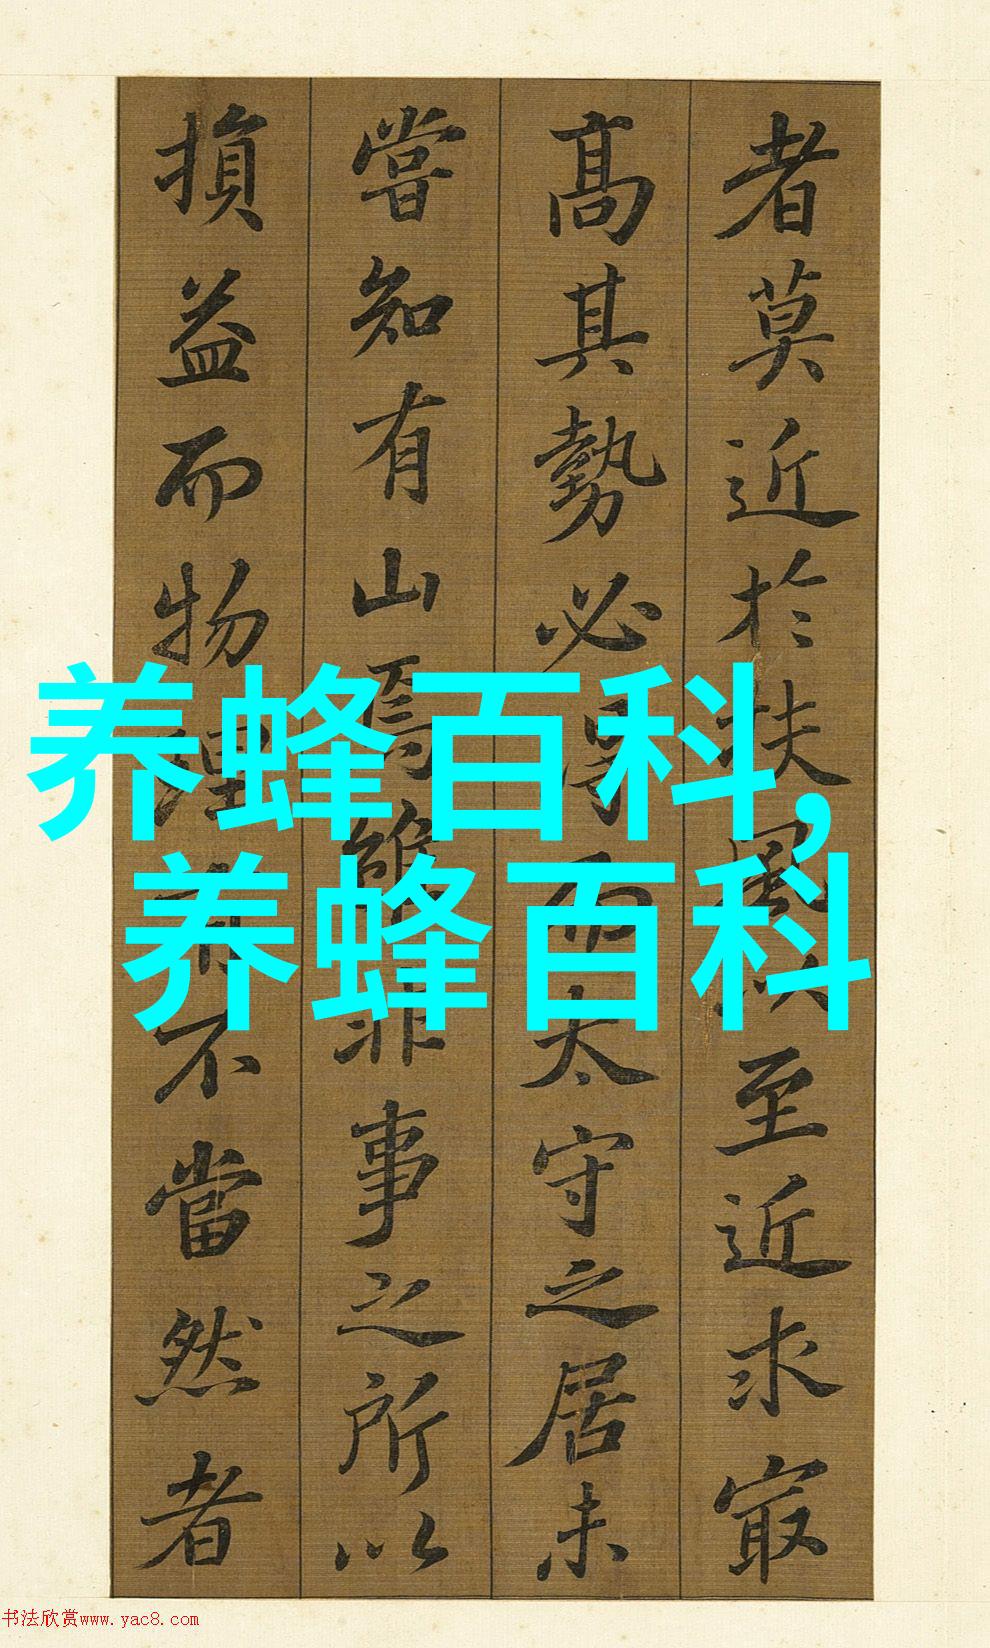 者莫近於扶風以至近求㝡
髙其勢必得而太守之居未
嘗知有山焉雖非事之所以
損益而物理有不當然者
养蜂百科,
养蜂百科
书法欣赏www.yac8.com